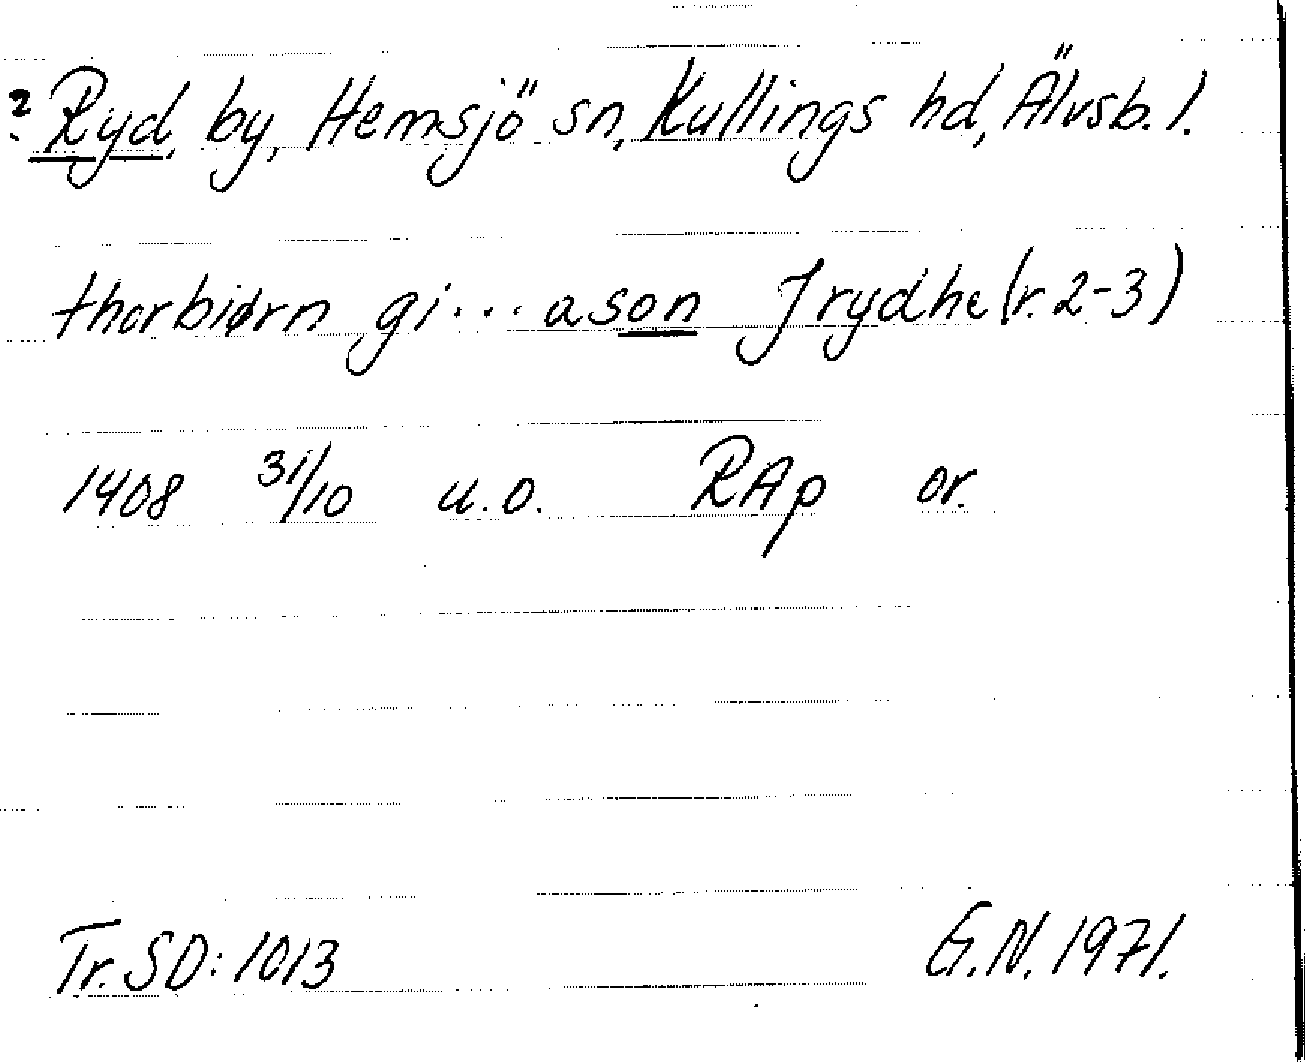 ? Ryd, by, Hemsjö sn, Kullings hd, Älvsb. l.
thorbiørn gi...ason J rydhe (r. 2-3)
1408 31/10 u.o. RAp or.
Tr. SD: 1013 G.N. 1971.